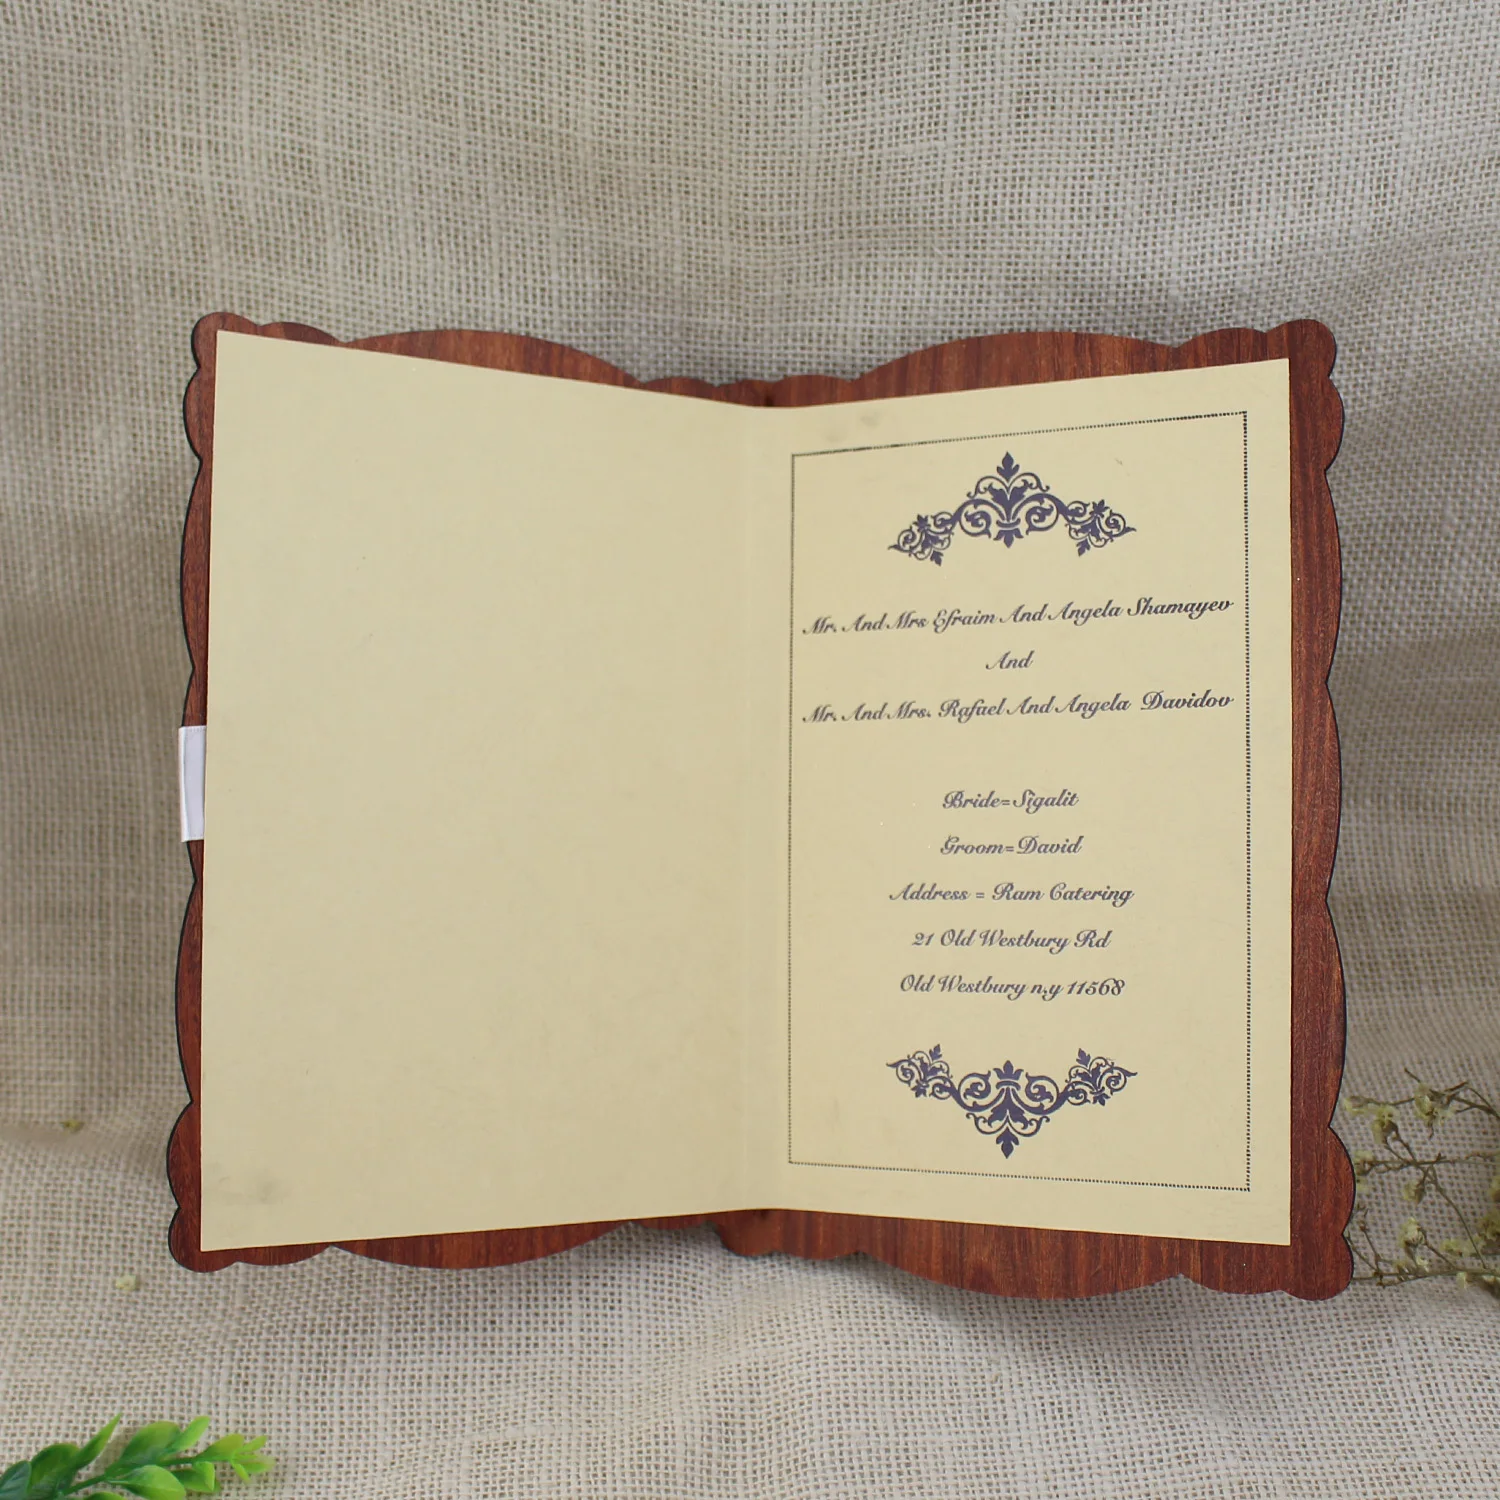 Mr. And Mrs Efraim And Angela Shamayev
And
Mr. And Mrs. Rafael And Angela Davidov
Bride=Sigalit
Groom=David
Address = Ram Catering
21 Old Westbury Rd
Old Westbury n,y 11568